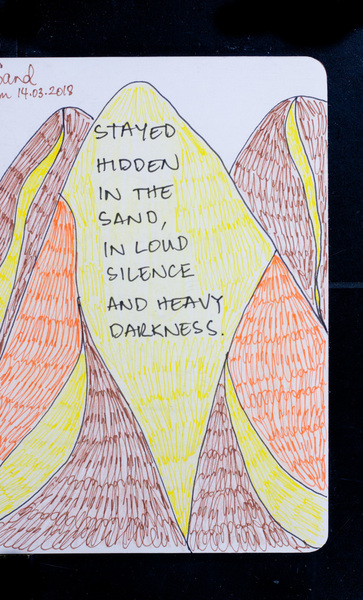 Sand
14.03.2018
STAYED
HIDDEN
IN THE
SAND,
IN LOUD
SILENCE
AND HEAVY
DARKNESS.